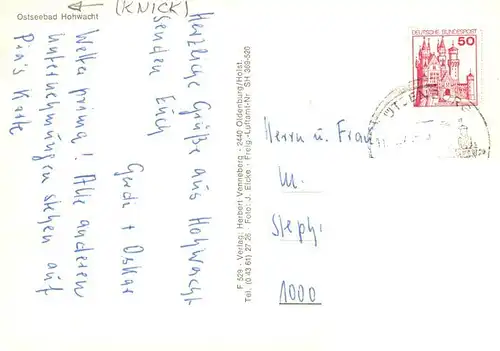 Ostseebad Hohwacht
(KNICK)
Herzliche Grüße aus Hohwacht
senden Euch
Gerdi + Oskar
Wetter prima! Alle anderen
Unternehmungen stehen auf
Pini's Karte
F 529 - Verlag: Herbert Venneberg - 2440 Oldenburg/Holst.
Tel. (0 43 61) 27 26 - Foto: J. Elcke - Freig.-Luftamt-Nr. SH 369-520
DEUTSCHE BUNDESPOST
50
Herrn u. Frau
M.
Steph
1000